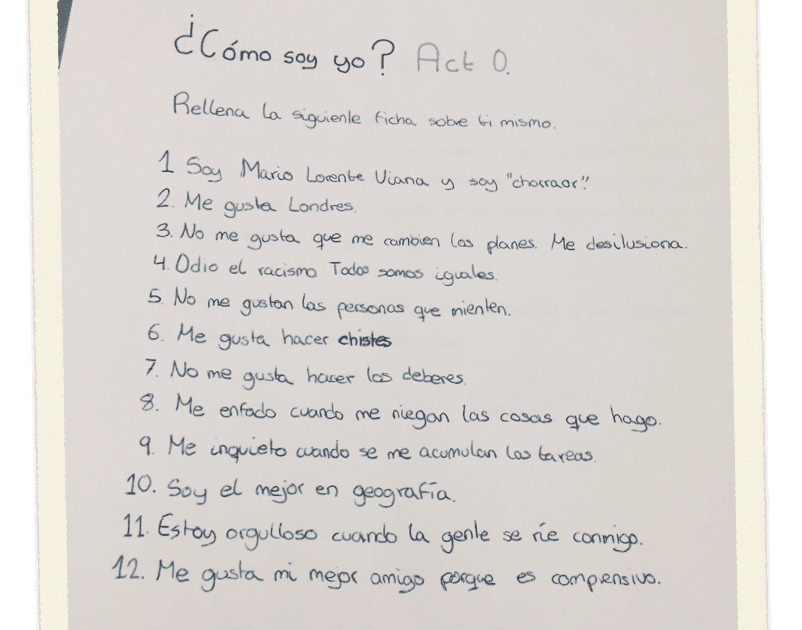 ¿Cómo soy yo? Act 0.
Rellena la siguiente ficha sobre ti mismo.
1 Soy Mario Lorente Viana y soy "chorraor".
2. Me gusta Londres.
3. No me gusta que me cambien los planes. Me desilusiona.
4. Odio el racismo Todos somos iguales.
5. No me gustan las personas que mienten.
6. Me gusta hacer chistes
7. No me gusta hacer los deberes.
8. Me enfado cuando me niegan las cosas que hago.
9. Me inquieto cuando se me acumulan las tareas.
10. Soy el mejor en geografía.
11. Estoy orgulloso cuando la gente se ríe conmigo.
12. Me gusta mi mejor amigo porque es compensivo.